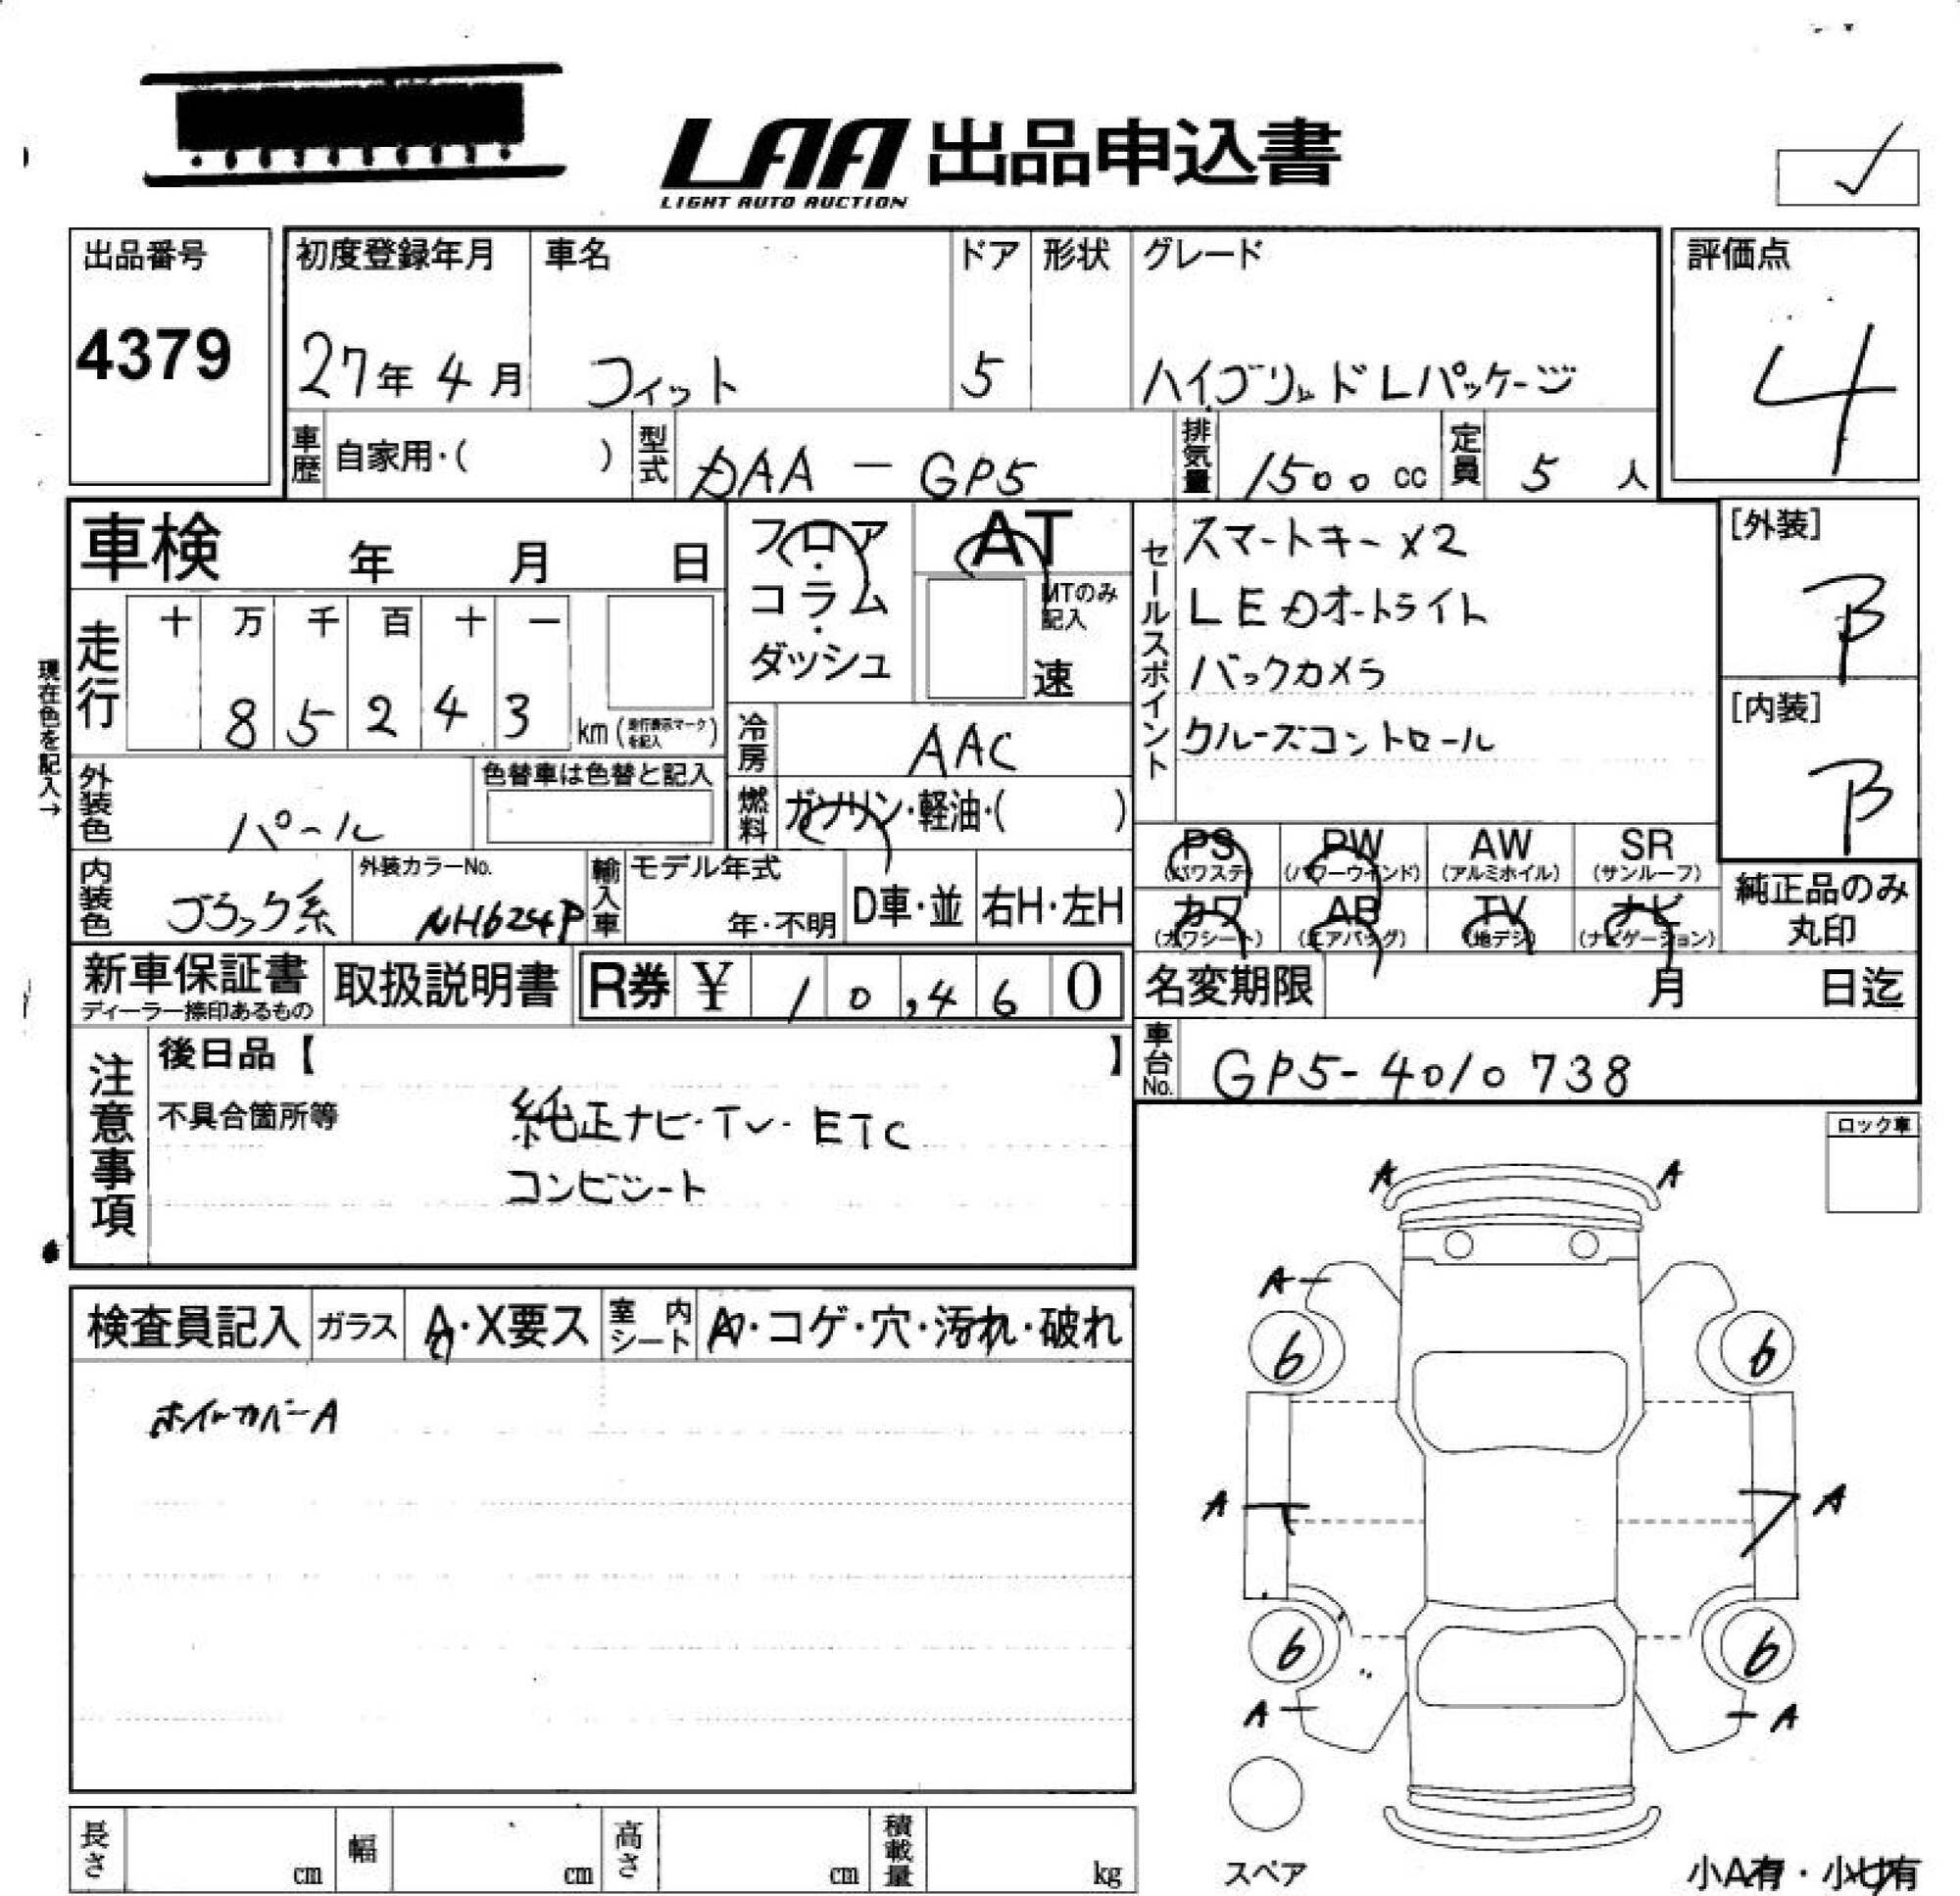 LAA 出品申込書
LIGHT AUTO AUCTION
出品番号
4379
初度登録年月 車名 ドア 形状 グレード
27年 4月 フィット 5 ハイブリッドLパッケージ
評価点
4
車歴 自家用・( ) 型式 DAA-GP5 排気量 1500 cc 定員 5 人
車検 年 月 日
フロア・コラム・ダッシュ
AT
MTのみ記入
速
セールスポイント
スマートキー×2
LEDオートライト
バックカメラ
クルーズコントロール
[外装]
B
[内装]
B
現在色を記入→
走行
十 万 千 百 十 一
8 5 2 4 3 km (走行表示マークを記入)
冷房 AAC
外装色 パール
色替車は色替と記入
燃料 ガソリン・軽油・( )
内装色 ブラック系
外装カラーNo.
NH624P
輸入車 モデル年式
年・不明
D車・並 右H・左H
PS (パワステ) PW (パワーウインド) AW (アルミホイル) SR (サンルーフ)
カワ (カワシート) AB (エアバッグ) TV (地デジ) ナビ (ナビゲーション)
純正品のみ丸印
新車保証書
ディーラー捺印あるもの
取扱説明書
R券 ¥ 10,460
名変期限 月 日迄
車台No. GP5-4010738
注意事項
後日品【 】
不具合箇所等
純正ナビ・TV・ETC
コンビシート
ロック車
検査員記入 ガラス A・X要ス 室内シート A・コゲ・穴・汚れ・破れ
ホイールカバーA
A A
A
6 6
A A
6 6
A A
スペア
小A有・小U有
長さ cm 幅 cm 高さ cm 積載量 kg